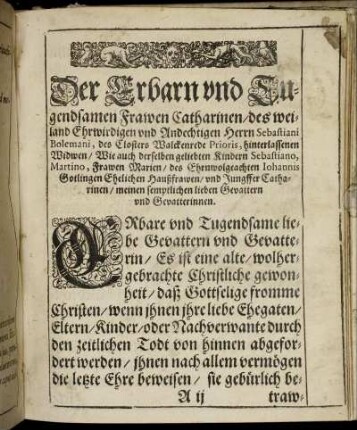 Der Erbarn vnd Tu-
gendsamen Frawen Catharinen / des wei-
land Ehrwirdigen vnd Andechtigen Herrn Sebastiani
Bolemani, des Closters Walckenrede Prioris, hinterlassenen
Widwen / Wie auch derselben geliebten Kindern Sebastiano,
Martino, Frawen Marien / des Ehrnwolgeachten Iohannis
Gotlingen Ehelichen Haußfrawen / vnd Jungffer Catha-
rinen / meinen semptlichen lieben Gevattern
vnd Gevatterinnen.
ERbare vnd Tugendsame lie-
be Gevattern vnd Gevatte-
rin / Es ist eine alte / wolher-
gebrachte Christliche gewon-
heit / daß Gottselige fromme
Christen / wenn jhnen jhre liebe Ehegaten /
Eltern / Kinder / oder Nachverwante durch
den zeitlichen Todt von hinnen abgefor-
dert werden / jhnen nach allem vermögen
die letzte Ehre beweisen / sie gebürlich be-
A ij traw-